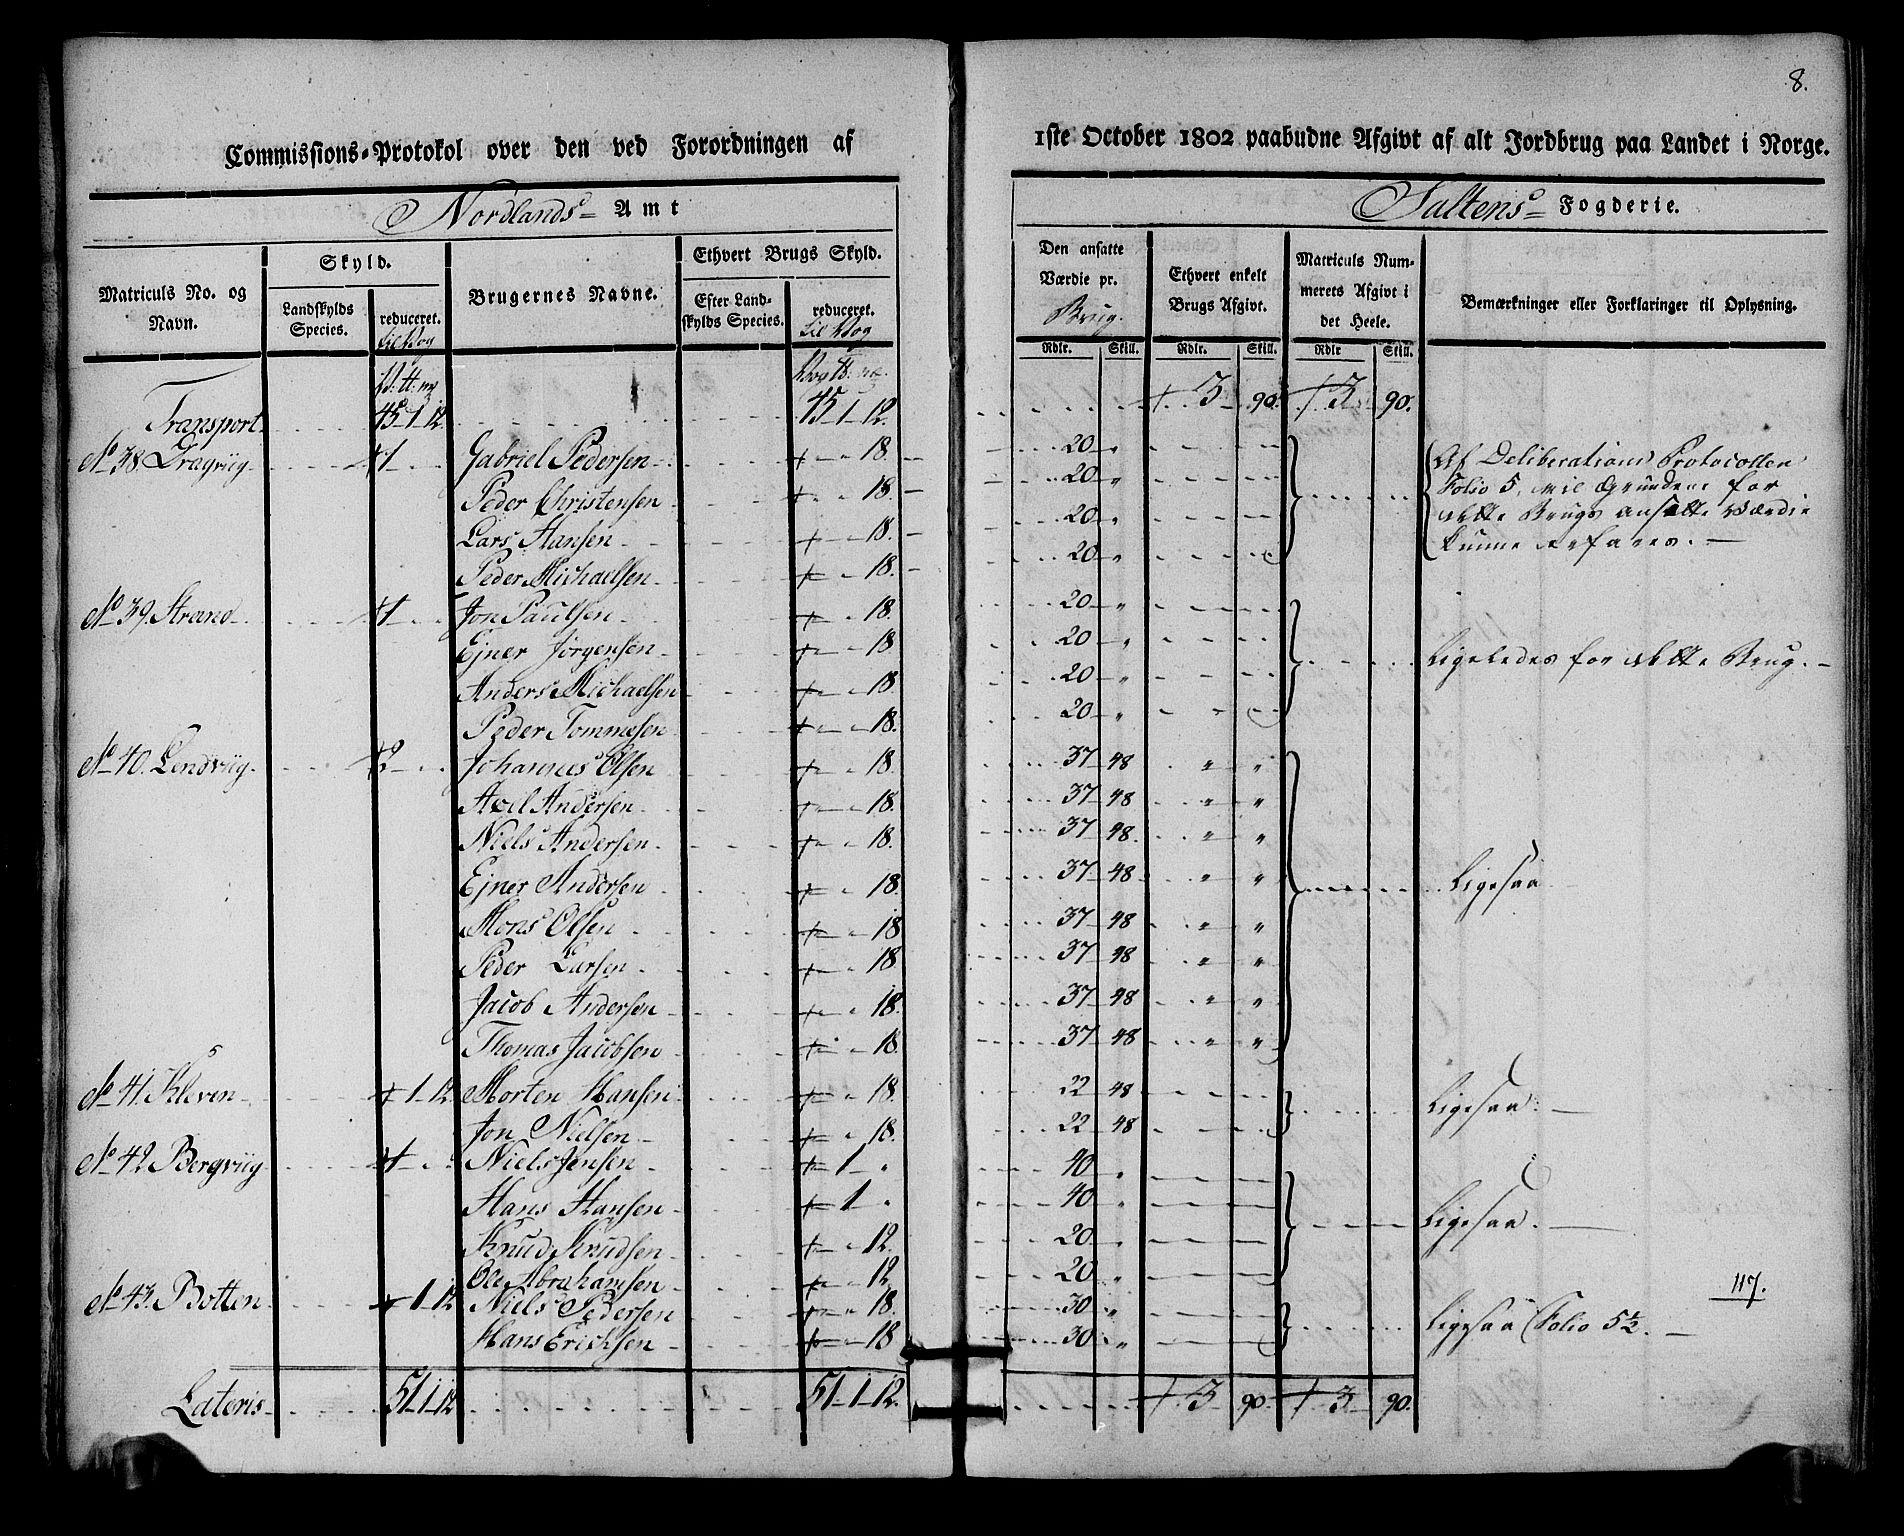 8.
Commissions-Protokol over den ved Forordningen af 1ste October 1802 paabudne Afgivt af alt Jordbrug paa Landet i Norge.
Nordlands Amt Saltens Fogderie.
Matriculs No. og Navn. Skyld. Brugernes Navne. Ethvert Brugs Skyld. Den ansatte Værdie pr. Brug. Ethvert enkelt Brugs Afgivt. Matriculs Nummerets Afgivt i det Heele. Bemærkninger eller Forklaringer til Oplysning.
Landskylds Species. reduceret. til Vog Efter Landskylds Species. reduceret. til Vog
Rdlr. Skill. Rdlr. Skill. Rdlr Skill.
Transport 45-1-12 45-1-12. 3 90. 3 90.
No 38. Dragviig 1 Gabriel Pedersen 18. 20 „ Af Deliberations Protocollen
Peder Christensen 18. 20 „ Folio 5, vil Grundene for
Lars Hansen 18. 20 „ dette Brugs ansatte Værdie
Peder Michaelsen 18. 20 „ kunne erfares.
No 39. Strand 1 Jon Paulsen 18. 20 „
Ejner Jørgensen 18 20 „ Ligeledes for dette Brug.
Anders Michaelsen 18 20 „
Peder Tommesen 18. 20 „
No 40. Lendviig 2 Johannes Olsen 18. 37 48 „ „
Axil Andersen 18. 37 48 „ „
Niels Andersen 18. 37 48 „ „
Ejner Andersen 18. 37 48 „ „ Ligesaa
Mons Olsen 18 37 48 „ „
Peder Larsen 18 37 48 „ „
Jacob Andersen 18. 37 48 „ „
Thomas Jacobsen 18. 37 48 „ „
No 41. Kleven 1-12 Morten Hansen 18. 22 48 Ligesaa.
Jon Nielsen 18. 22 48
No 42 Bergviig 1 Niels Jensen 1 „ 40 „
Hans Hansen 1 „ 40 „ Ligesaa.
Knud Knudsen 12. 20 „
Ole Abrahamsen 12 20 „
117.
No 43. Botten 1-12 Niels Pedersen 18. 30 „ Ligesaa Folio 5½.
Hans Erichsen 18 30 „
Lateris 51-1-12 51-1-12. 3 90. 3 90.